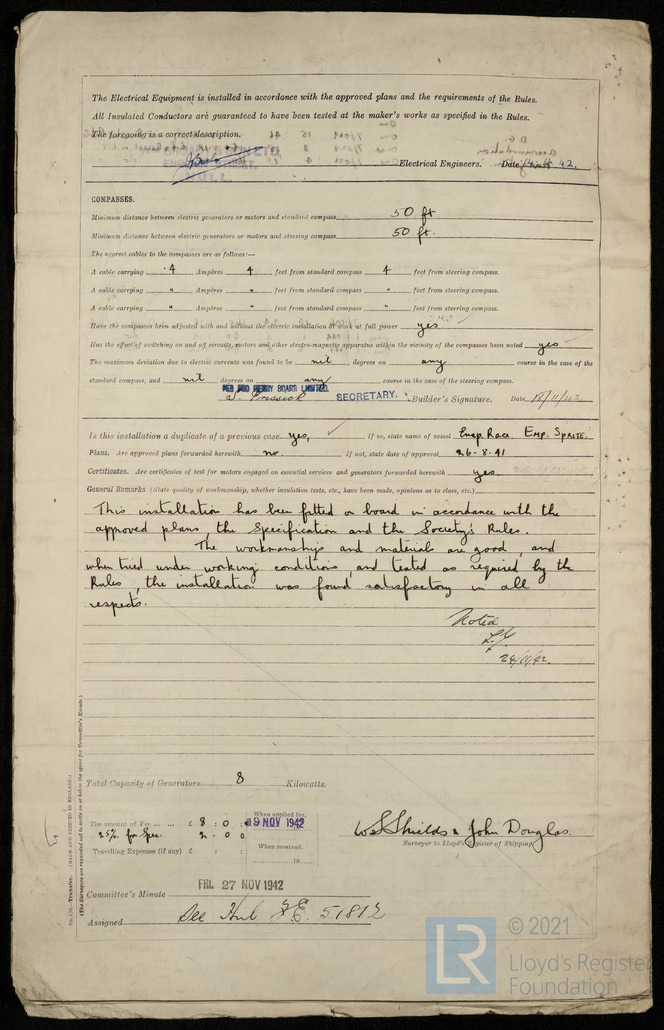 The Electrical Equipment is installed in accordance with the approved plans and the requirements of the Rules.
All Insulated Conductors are guaranteed to have been tested at the maker's works as specified in the Rules.
The foregoing is a correct description.
Electrical Engineers. Date 42.
HULL.
COMPASSES.
Minimum distance between electric generators or motors and standard compass 50 ft
Minimum distance between electric generators or motors and steering compass 50 ft.
The nearest cables to the compasses are as follows:—
A cable carrying .4 Ampères 4 feet from standard compass 4 feet from steering compass.
A cable carrying " Ampères " feet from standard compass " feet from steering compass.
A cable carrying " Ampères " feet from standard compass " feet from steering compass.
Have the compasses been adjusted with and without the electric installation at work at full power yes
Has the effect of switching on and off circuits, motors and other electro-magnetic apparatus within the vicinity of the compasses been noted yes
The maximum deviation due to electric currents was found to be nil degrees on any course in the case of the
standard compass, and nil degrees on any course in the case of the steering compass.
SECRETARY. Builder's Signature. Date 18/11/42
Is this installation a duplicate of a previous case yes, If so, state name of vessel Emp. Race Emp. Sprite.
Plans. Are approved plans forwarded herewith no. If not, state date of approval 26-8-41
Certificates. Are certificates of test for motors engaged on essential services and generators forwarded herewith yes.
General Remarks (State quality of workmanship, whether insulation tests, etc., have been made, opinions as to class, etc.)
This installation has been fitted on board in accordance with the
approved plans, the Specification and the Society's Rules.
The workmanship and materials are good, and
when tried under working conditions, and tested as required by the
Rules, the installation was found satisfactory in all
respects.
Noted
24/11/42.
Total Capacity of Generators 8 Kilowatts.
The amount of Fee ... ... £ 8 : 0 : When applied for, 19 NOV 1942
25% for Spec. 2 - 0 0
Travelling Expenses (if any) £ : : When received, 19
W S Shields & John Douglas
Surveyor to Lloyd's Register of Shipping.
Committee's Minute FRI. 27 NOV 1942
Assigned See Hul F.E. 51812
Transfer. (MADE AND PRINTED IN ENGLAND.)
(The Surveyors are requested not to write on or below the space for Committee's Minute.)
LR
© 2021
Lloyd's Register
Foundation